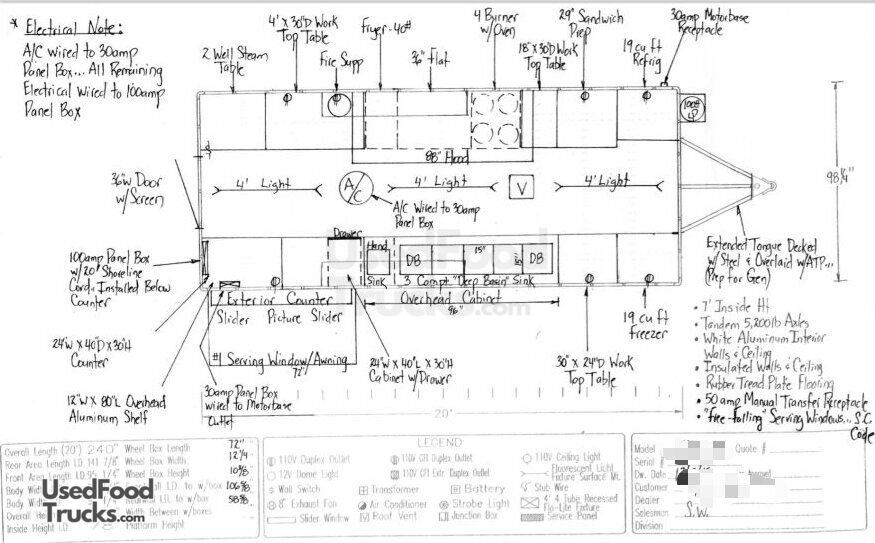 * Electrical Note:
A/C Wired to 30amp
Panel Box... All Remaining
Electrical Wired to 100amp
Panel Box
2 Well Steam
Table
4' X 30"D Work
Top Table
Fire Supp
Fryer-40#
36" Flat
4 Burner
w/Oven
29" Sandwich
Prep
18" X 30"D Work
Top Table
19 cu ft
Refrig
30amp Motorbase
Receptacle
100#
LP
88" Hood
98 1/4"
36"W Door
w/Screen
4' Light
A/C
4' Light
V
4' Light
A/C Wired to 30amp
Panel Box
Extended Tongue Decked
w/Steel & Overlaid w/ATP...
(Prep for Gen)
100amp Panel Box
w/20' Shoreline
Cord - Installed Below
Counter
Drawer
Hand
Sink
DB
15"
DB
3 Compt. "Deep Basin" Sink
Overhead Cabinet
96"
Exterior Counter
Slider Picture Slider
#1 Serving Window/Awning
72"
24"W X 40"D X 30"H
Counter
12"W X 80"L Overhead
Aluminum Shelf
30amp Panel Box
wired to Motorbase
Outlet
24"W X 40"L X 30"H
Cabinet w/Drawer
30" X 24"D Work
Top Table
19 cu ft
Freezer
• 7' Inside Ht
• Tandem 5,200lb Axles
• White Aluminum Interior
Walls & Ceiling
• Insulated Walls & Ceiling
• Rubber Tread Plate Flooring
• 50amp Manual Transfer Receptacle
• "Free-Falling" Serving Windows... S.C.
Code
20'
UsedFood
Trucks.com
Overall Length (20') 240" Wheel Box Length 72"
Rear Area Length I.D. 141 7/8" Wheel Box Width 12 1/4
Front Area Length I.D. 95 1/4" Wheel Box Height 10 5/8
Body Width I.D. to w/box 106 5/8
Body I.D. to w/box 58 3/8
Overall Width Between w/boxes
Inside Height I.D. Platform Height
UsedFood
Trucks.com
LEGEND
110V Duplex Outlet
110V GFI Duplex Outlet
110V Ceiling Light
12V Dome Light
110V GFI Extr. Duplex Outlet
Fluorescent Light
Fixture Surface Mt.
Wall Switch
Transformer
Battery
Stub Wire
8" Exhaust Fan
Air Conditioner
Strobe Light
4' 4 Tube Recessed
Flo-Lite Fixture
Slider Window
Roof Vent
Junction Box
Service Panel
Model
Quote #
Serial #
Dw. Date
Customer
Dealer
Salesman S.W.
Division